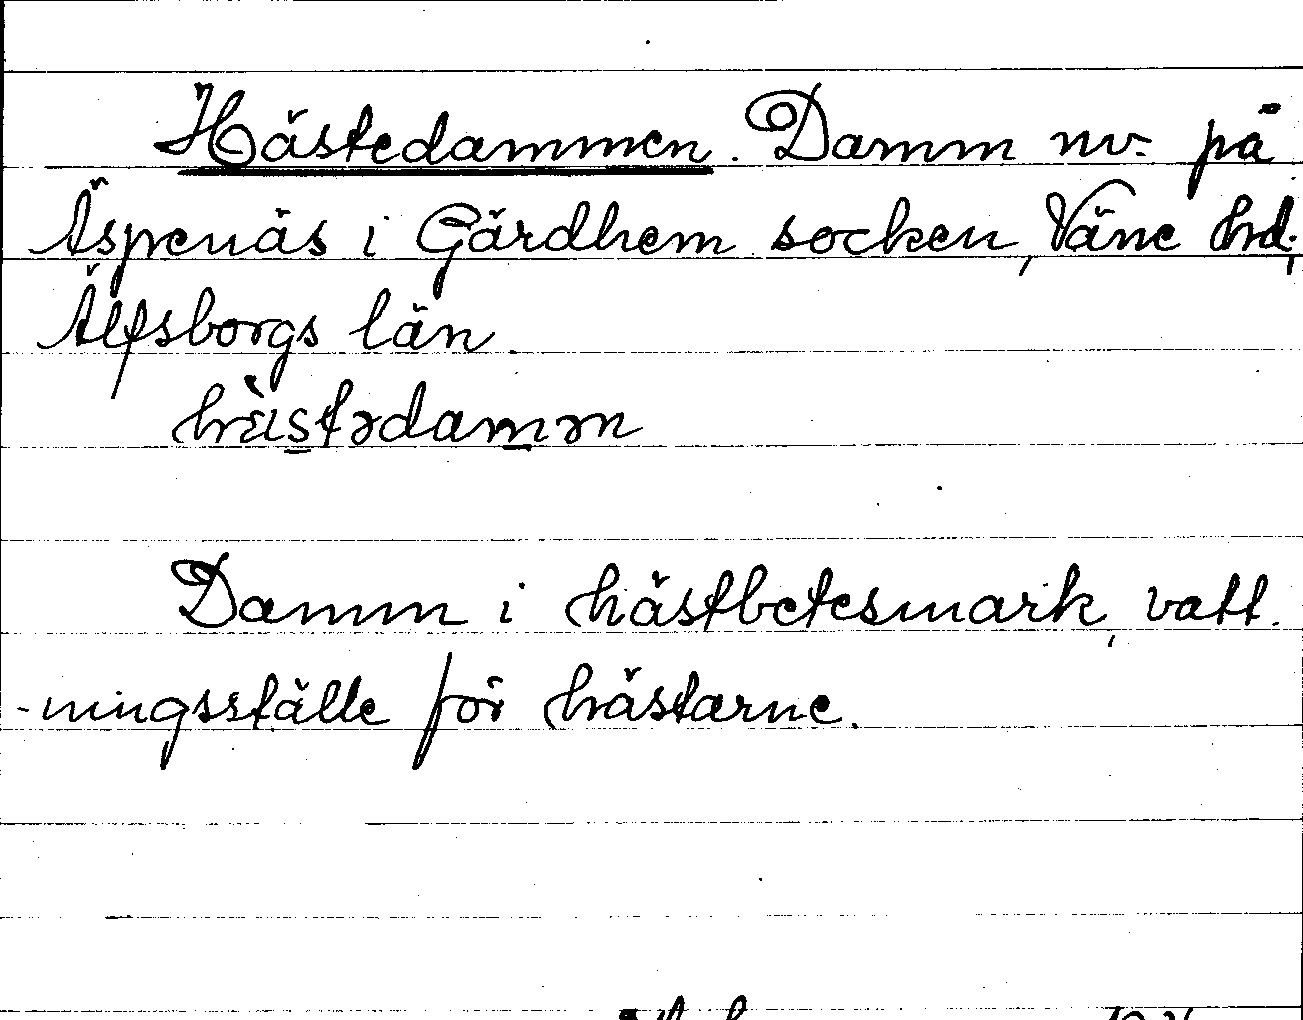 Hästedammen. Damm nv. på
Äspenäs i Gärdhem socken, Väne hd.,
Älfsborgs län.
hæ̀stədamən
Damm i hästbetesmark, vatt-
-ningsställe för hästarne.